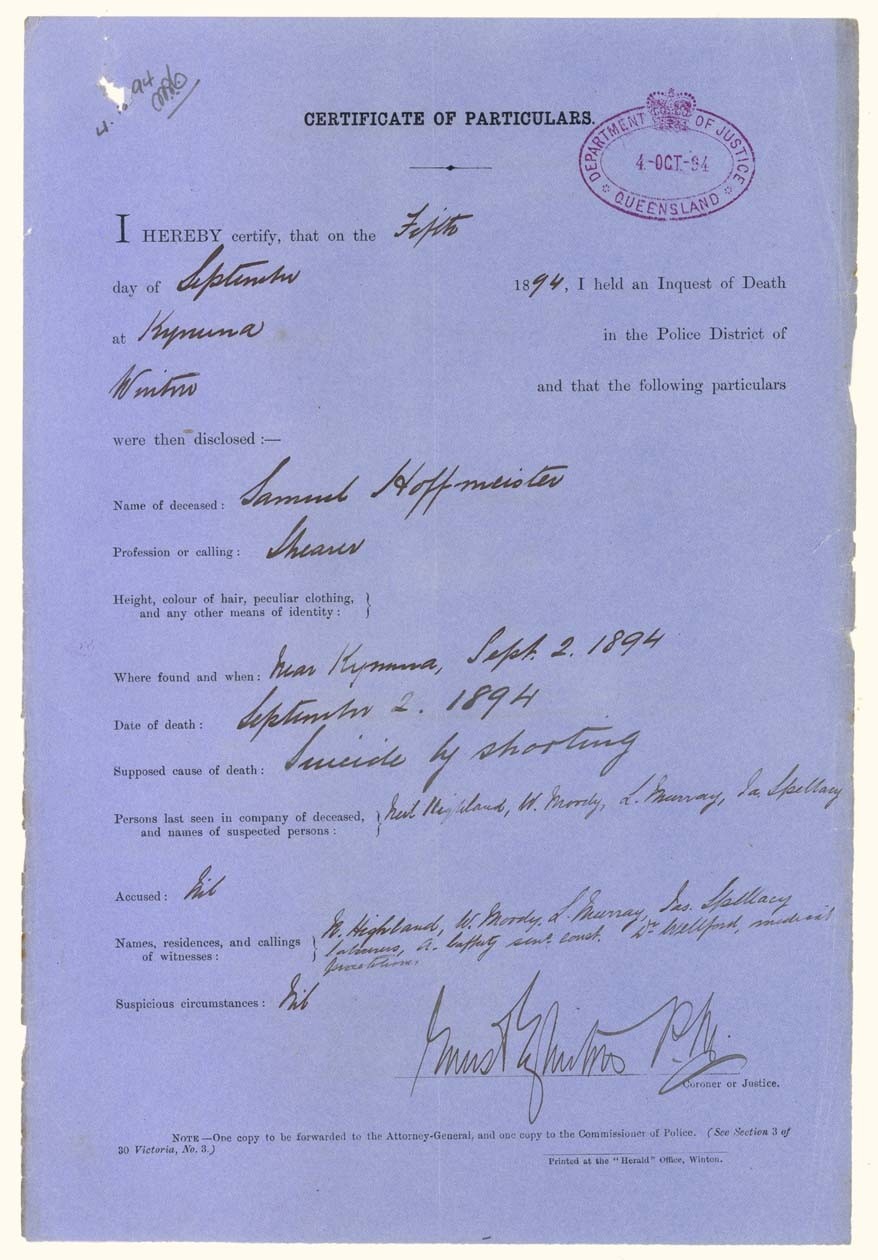 4.10.94
CERTIFICATE OF PARTICULARS.
DEPARTMENT OF JUSTICE
4-OCT-94
QUEENSLAND
I HEREBY certify, that on the Fifth
day of September 1894, I held an Inquest of Death
at Kynuna in the Police District of
Winton and that the following particulars
were then disclosed :—
Name of deceased : Samuel Hoffmeister
Profession or calling : Shearer
Height, colour of hair, peculiar clothing,
and any other means of identity :
Where found and when : Near Kynuna, Sept. 2. 1894
Date of death : September 2. 1894
Supposed cause of death : Suicide by shooting
Persons last seen in company of deceased, Neil Highland, W. Moody, L. Murray, Jas. Spellacy
and names of suspected persons :
Accused : Nil
Names, residences, and callings N. Highland, W. Moody. L. Murray, Jas. Spellacy
of witnesses : labourers, A. Lafferty senr. const. Dr. Wellford, medical
practitioner.
Suspicious circumstances : Nil
P.M.
Coroner or Justice.
NOTE—One copy to be forwarded to the Attorney-General, and one copy to the Commissioner of Police. (See Section 3 of
30 Victoria, No. 3.)
Printed at the "Herald" Office, Winton.